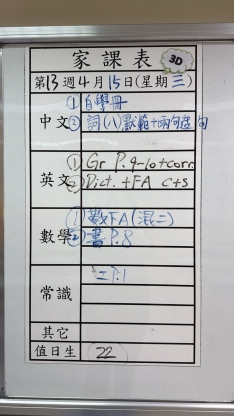 家課表
3D
第13週4月15日(星期三)
中文
① 自學冊
② 詞(八)默範+兩句造句
英文
① Gr P.9-10+corr.
② Dict. + FA c+s
數學
① 數下A(混二)
② 書P.8
常識
工P.1
其它
值日生 22